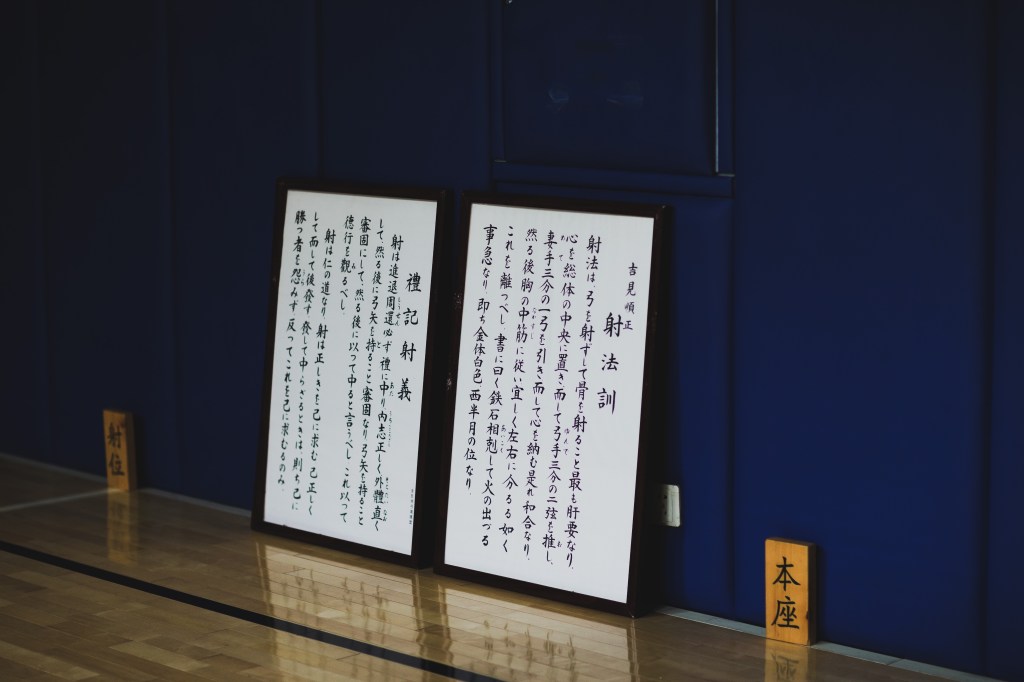 本座
吉見順正
射法訓
射法は、弓を射ずして骨を射ること最も肝要なり。
心を総体の中央に置き而して弓手三分の二弦を推し、
妻手三分の一弓を引き而して心を納む是れ和合なり。
然る後胸の中筋に従い宜しく左右に分るる如く
これを離つべし。書に曰く鉄石相剋して火の出づる
事急なり。即ち金体白色、西半月の位なり。
禮記射義
射は進退周還必ず禮に中り内志正しく外體直く
して、然る後に弓矢を持ること審固なり弓矢を持ること
審固にして、然る後に以って中ると言うべしこれ以って
徳行を觀るべし
射は仁の道なり射は正しきを己に求む己正しく
して而して後發す發して中らざるときは、則ち己に
勝つ者を怨みず反ってこれを己に求むるのみ
射位